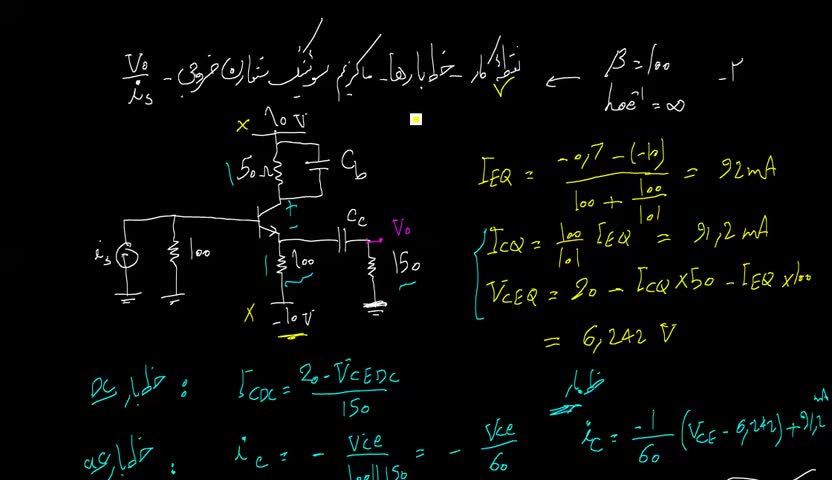 نقطه کار - خط بارها - ماکزیمم سوئینگ متقارن خروجی - Vo/is
← β = 100
hoe⁻¹ = ∞
-2
10 V
50 Ω
Cb
Cc
Vo
is
100
100
150
-10V
IEQ = (-0,7 - (-10)) / (100 + 100/101) = 92 mA
ICQ = 100/101 IEQ = 91,2 mA
VCEQ = 20 - ICQ × 50 - IEQ × 100
= 6,242 V
خط بار DC : ICDC = (20 - VCEDC) / 150
خط بار ac : ic = - Vce / (100||150) = - Vce / 60
خط بار
ic = -1/60 (VCE - 6,242) + 91,2 mA